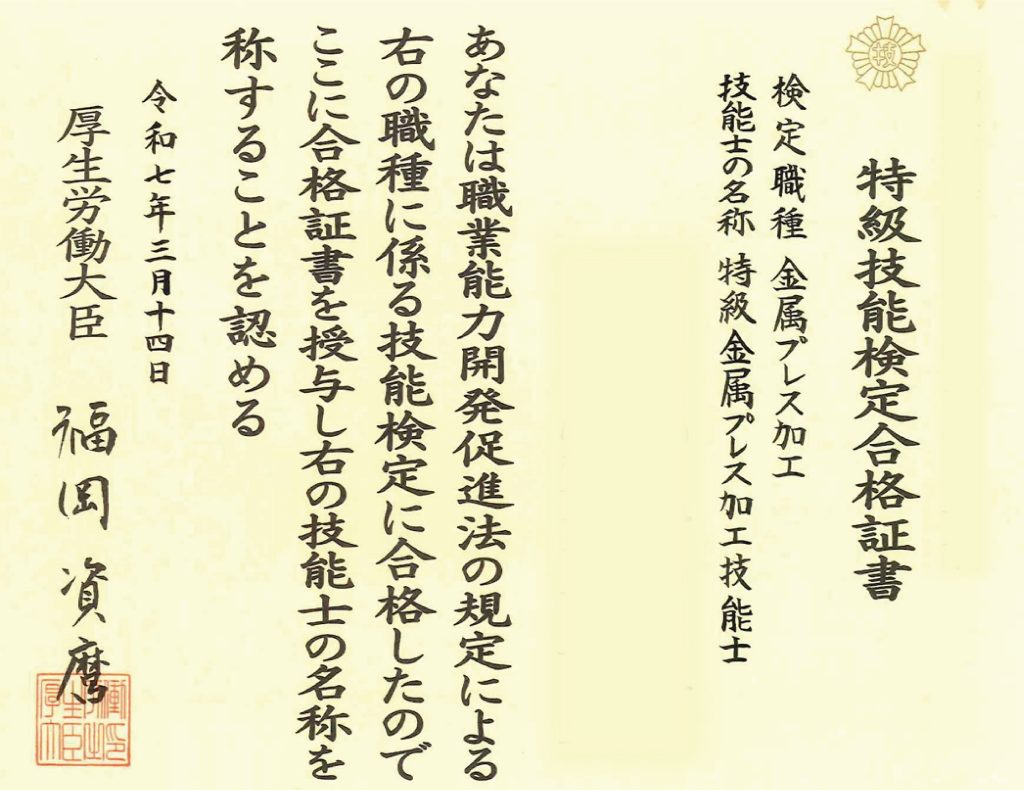 技
特級技能検定合格証書
検定職種 金属プレス加工
技能士の名称 特級金属プレス加工技能士
あなたは職業能力開発促進法の規定による
右の職種に係る技能検定に合格したので
ここに合格証書を授与し右の技能士の名称を
称することを認める
令和七年三月十四日
厚生労働大臣 福岡資麿